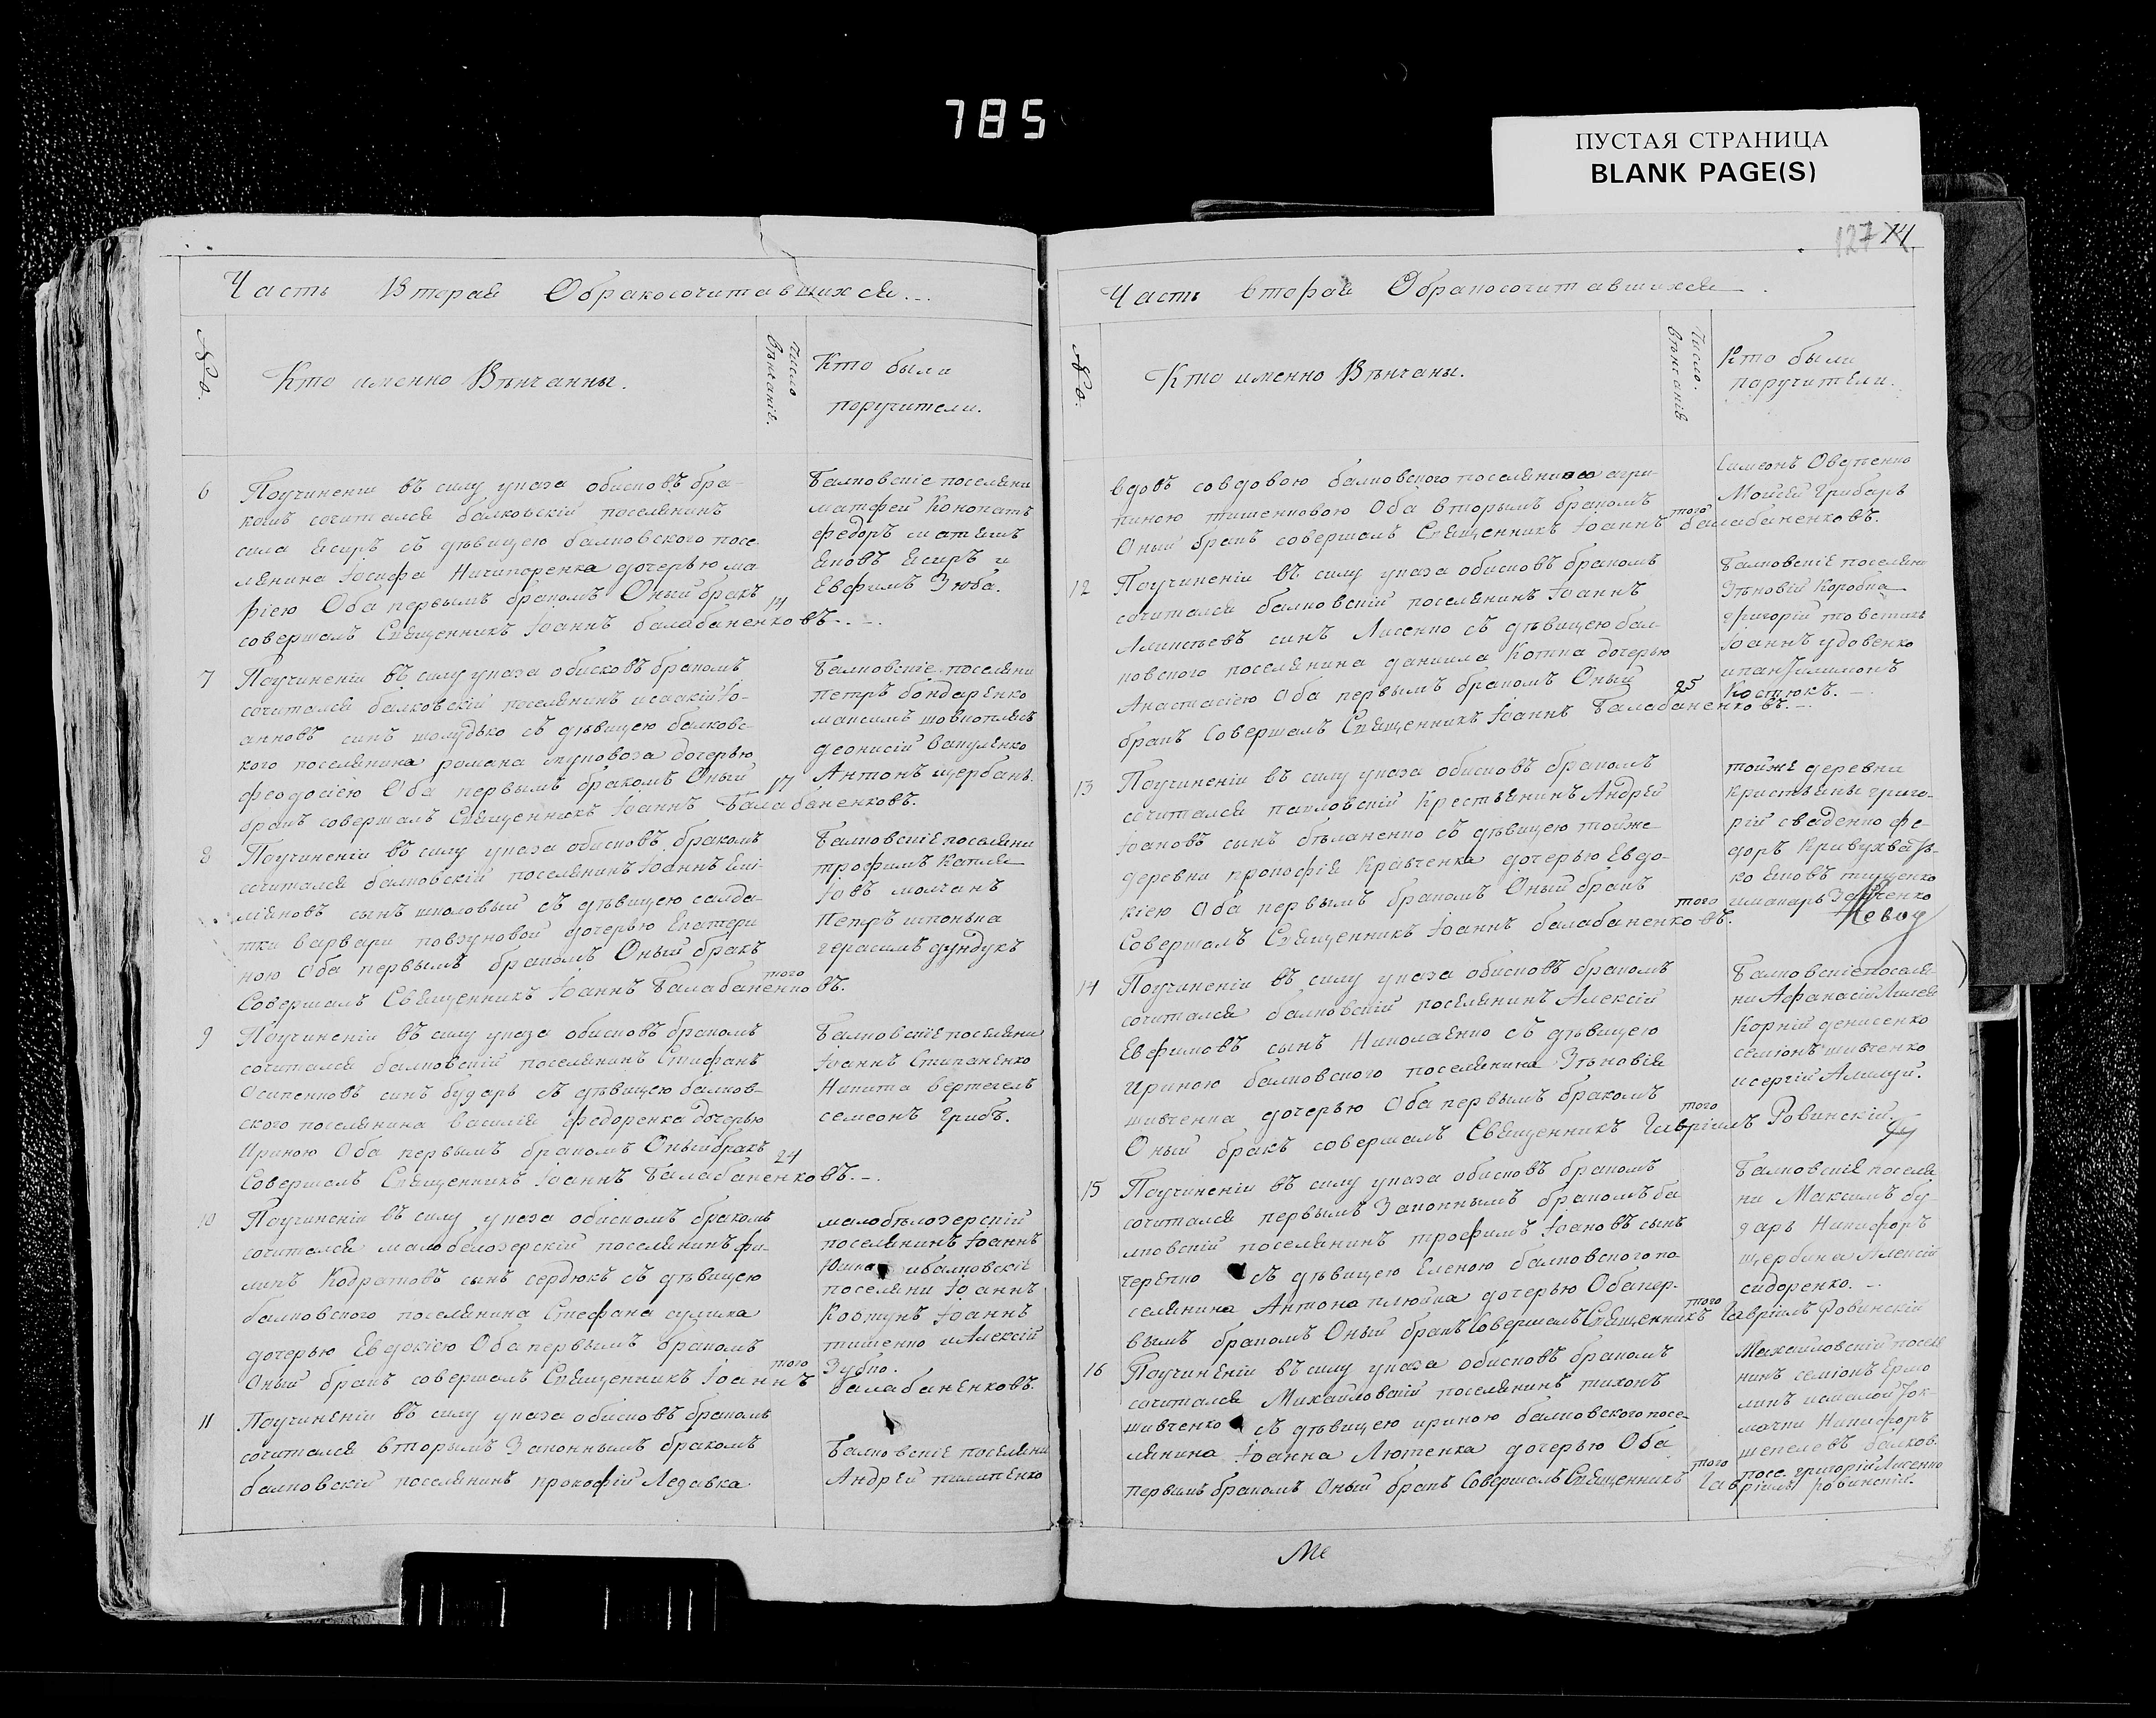 785
ПУСТАЯ СТРАНИЦА
BLANK PAGE(S)
Часть Вторая Обракосочитавшихся
№
Кто именно Вѣнчанны.
Число Вѣнчанiѣ.
Кто были
поручители.
6
Поучиненіи въ силу указа обисковъ бра-
комъ сочитался балковскій поселянинъ
сила Есиръ съ дѣвицею балковского посе-
лянина Іосифа Ничипоренка дочерью ма
фіею Оба первымъ бракомъ Оный бракъ
совершалъ Священникъ Іоаннъ балабаненковъ.
Балковсніе поселяни
матфей Конопатъ
федоръ
Яковъ Есиръ и
Евфимъ Зюба.
7
Поучиненіи въ силу указа обисковъ бракомъ
сочитался балковскій поселянинъ исаакій Іо-
анновъ синъ шолудько съ дѣвицею балковс-
кого поселянина романа туповоза дочерью
феодосіею Оба первымъ бракомъ Оный
17
бракъ совершалъ Священникъ Іоаннъ Балабаненковъ.
Балковсніе поселяни
петръ бондаренко
максимъ
деонисій вакуленко
Антонъ щербань.
8
Поучиненіи въ силу указа обисковъ бракомъ
сочитался балковскій поселянинъ Іоаннъ Емі-
ліяновъ сынъ школовый съ дѣвицею салда-
тки варвари повзуновой дочерью Екатери
ною Оба первымъ бракомъ Оный бракъ
того
Совершалъ Священникъ Іоаннъ Балабаненковъ.
Балковсніе поселяни
трофимъ Капля
Іовъ молчанъ
Петръ шпонька
герасимъ дундукъ
9
Поучиненіи въ силу указа обисковъ бракомъ
сочитался балковскій поселянинъ Стифанъ
Осипенковъ синъ бударъ съ дѣвицею балков-
ского поселянина василія федоренка дочерью
Ириною Оба первымъ бракомъ Оный бракъ
24
Совершалъ Священникъ Іоаннъ Балабаненковъ.
Балковсніе поселяни
Іоаннъ Стипаненко
Никита бертегелъ
семеонъ грибъ.
10
Поучиненіи въ силу указа обискомъ бракомъ
сочитался малобелозерскій поселянинъ фи
липъ Кодратовъ сынъ сердюкъ съ дѣвицею
балковского поселянина Стефана сулима
дочерью Евдокіею Оба первымъ бракомъ
того
Оный бракъ совершалъ Священникъ Іоаннъ балабаненковъ.
малобѣлозерскій
поселянинъ Іоаннъ
ибалковскіе
поселяни Іоаннъ
Ковтунъ Іоаннъ
тишенко иАлексій
Зубко.
11
Поучиненіи въ силу указа обисковъ бракомъ
сочитался вторымъ Законнымъ бракомъ
балковскій поселянинъ прокофій Ледавка
Балковсніе поселяни
Андрей пилипенко
127 14
Часть вторая Обракосочитавшихся
№
Кто именно Вѣнчаны.
Число. Вѣнчаніѣ
Кто были
поручители.
вдовъ совдовою балковского поселянина агри-
пиною тишенковою Оба вторымъ бракомъ
того
Оный бракъ совершалъ Священникъ Іоаннъ балабаненковъ.
Симеонъ Овсіенко
Мойсей грибаръ
12
Поучиненіи въ силу указа обисковъ бракомъ
сочитался балковскій поселянинъ Іоаннъ
синъ Лисенко съ дѣвицею бал-
ковского поселянина даниила Котка дочерью
Анастасіею Оба первымъ бракомъ Оный
25
бракъ Совершалъ Священникъ Іоаннъ Балабаненковъ.
Балковсніе поселяни
Зѣновій Коробка
григорій товстикъ
Іоаннъ удовенко
Костюкъ.
13
Поучиненіи въ силу указа обисковъ бракомъ
сочитался павловскій Крестьянинъ Андрей
Іоановъ сынъ бѣланенко съ дѣвицею тойже
деревни прокофія Кравченка дочерью Евдо-
кіею Оба первымъ бракомъ Оный бракъ
того
Совершалъ Священникъ Іоаннъ балабаненковъ.
тойже деревни
кристьяны григо-
рій сваденко фе-
доръ Кривухвать-
ко Яковъ тищенко
14
Поучиненіи въ силу указа обисковъ бракомъ
сочитался балковскій поселянинъ Алексій
Евфимовъ сынъ Николаенко съ дѣвицею
Ириною балковского поселянина Зѣновія
шивченка дочерью Оба первымъ бракомъ
того
Оный бракъ совершалъ Священникъ Гавріилъ Ровинскій.
Балковсніе поселя-
ни Афанасій Лилея
Корній денисенко
семіонъ шивченко
исергій
15
Поучиненіи въ силу указа обисковъ бракомъ
сочитался первымъ Законнымъ бракомъ ба
лковскій поселянинъ трофимъ Іоановъ сынъ
черепко съ дѣвицею Еленою балковского по
селянина Антона плюйка дочерью Оба пер-
того
вымъ бракомъ Оный бракъ Совершалъ Священникъ Гавріилъ Ровинскій
Балковсніе поселя
ни Максимъ бу-
даръ Никифоръ
щербина Алексій
сидоренко.
16
Поучиненіи въ силу указа обисковъ бракомъ
сочитался Михайловскій поселянинъ тихонъ
шивченко съ дѣвицею ириною балковского посе-
лянина Іоанна Лютенка дочерью Оба
того
первымъ бракомъ Оный бракъ Совершалъ Священникъ Гавріилъ Ровинскій.
Михайловскій поселя
нинъ семіонъ Ермо
линъ измалой Ток
мачки Никифоръ
шепелевъ балков.
посе. григорій Лисенко
Ме